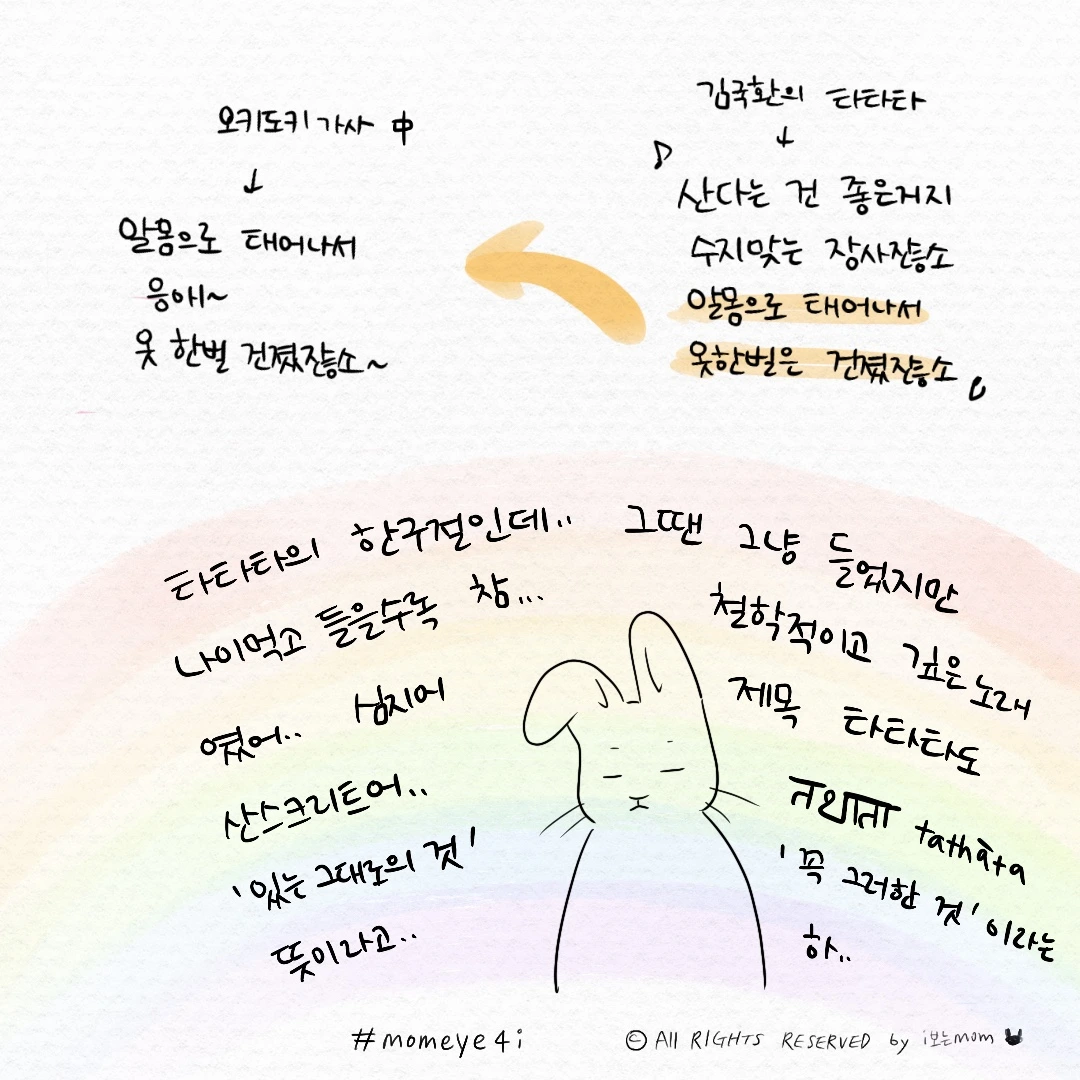 오키도키 가사 中
↓
알몸으로 태어나서
응애~
옷 한벌 건졌잖소~
김국환의 타타타
↓
♪
산다는 건 좋은거지
수지맞는 장사잖소
알몸으로 태어나서
옷한벌은 건졌잖소
타타타의 한구절인데.. 그땐 그냥 들었지만
나이먹고 들을수록 참... 철학적이고 깊은 노래
였어.. 심지어 제목 타타타도
산스크리트어.. तथाता tathāta
'있는 그대로의 것' '꼭 그러한 것'이라는
뜻이라고.. 하..
#momeye4i
© All RIGHTS RESERVED by i보는mom